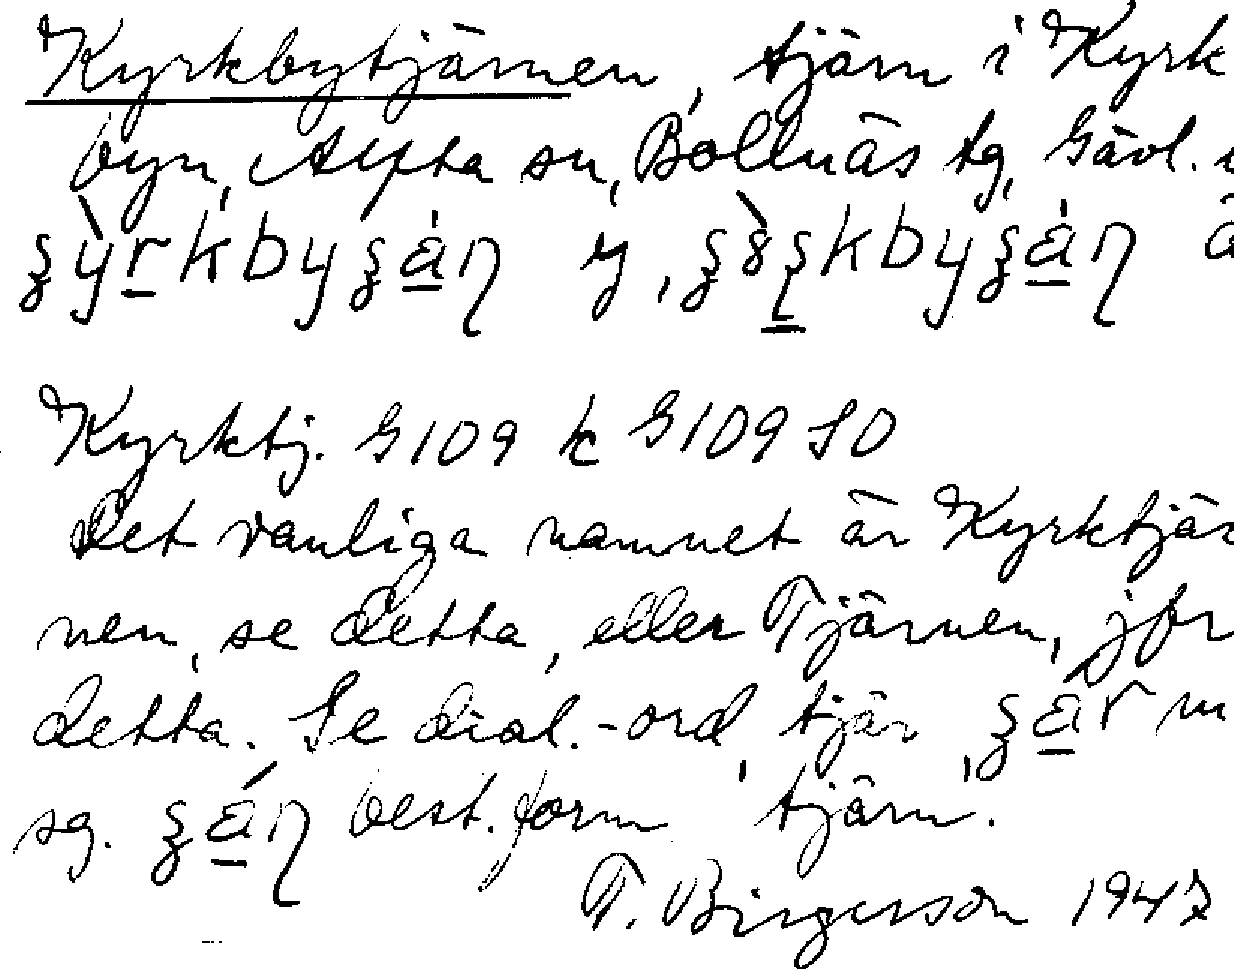 Kyrkbytjärnen, tjärn i Kyrk
byn, Alfta sn, Bollnäs tg, Gävl.
Kyrktj. G109 k G109 SO
Det vanliga namnet är Kyrktjär
nen, se detta, eller Tjärnen, jfr
detta. Se dial.-ord, tjär, m
sg. best. form 'tjärn'.
T. Birgerson 1947